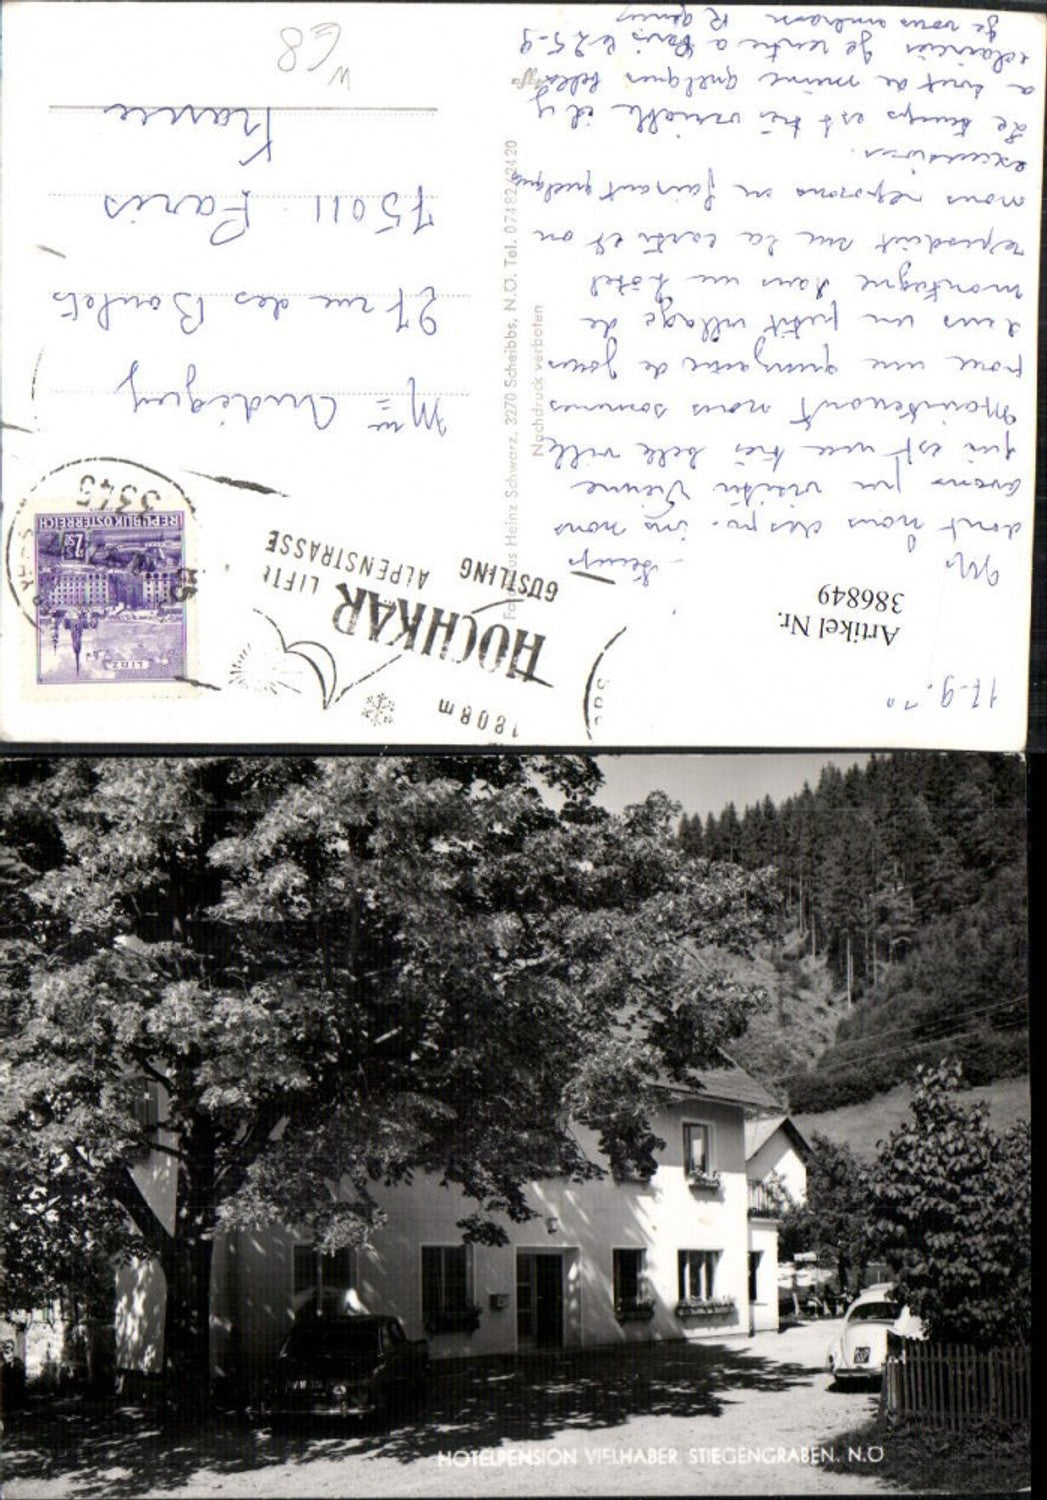 17-9.70
Artikel Nr.
386849
1808m
HOCHKAR
LIFTE
GUSTLING ALPENSTRASSE
3345
REPUBLIK ÖSTERREICH
LINZ
dont nous
avons pu visiter Vienne
qui est une très belle ville
Maintenant nous sommes
pour une quinzaine de jours
dans un petit village de
montagne dans un hôtel
reproduit sur la carte et on
nous reposons en faisant quelques
excursions.
Le temps est très variable il y
a tout de même quelques belles
eclaircies Je rentre a Paris le 25-9
Je vous embrasse
Heinz Schwarz, 3270 Scheibbs, N.Ö. Tel. 07482/2420
Nachdruck verboten
Mme Audéguy
27 rue des Boulets
75011 Paris
France
HOTELPENSION VIELHABER STIEGENGRABEN. N.Ö